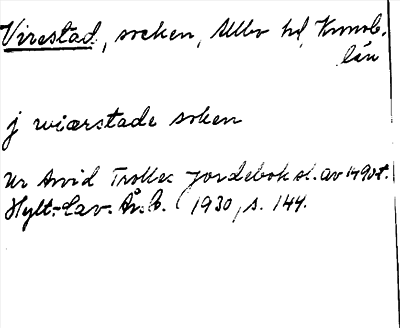 Virestad, socken, Allbo hd, Kronob.
län
j wiærstade soken
Ur Arvid Trolles jordebok sl. av 1490t.
Hylt.-Cav. År.b. 1930, s. 144.